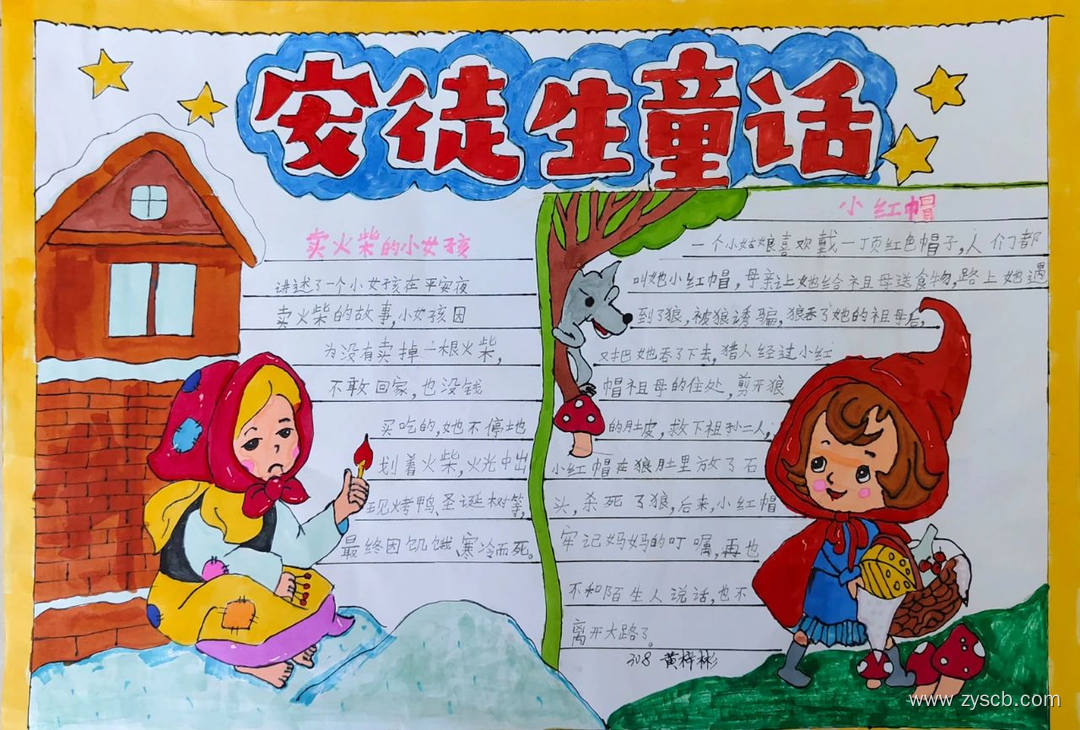 安徒生童话
卖火柴的小女孩
讲述了一个小女孩在平安夜
卖火柴的故事,小女孩因
为没有卖掉一根火柴,
不敢回家,也没钱
买吃的,她不停地
划着火柴,火光中出
现烤鸭、圣诞树等,
最终因饥饿寒冷而死。
小红帽
一个小姑娘喜欢戴一顶红色帽子,人们都
叫她小红帽,母亲让她给祖母送食物,路上她遇
到了狼,被狼诱骗,狼吞了她的祖母后,
又把她吞了下去,猎人经过小红
帽祖母的住处,剪开狼
的肚皮,救下祖孙二人,
小红帽在狼肚里放了石
头,杀死了狼,后来,小红帽
牢记妈妈的叮嘱,再也
不和陌生人说话,也不
离开大路了
308 黄梓彬
www.zyscb.com